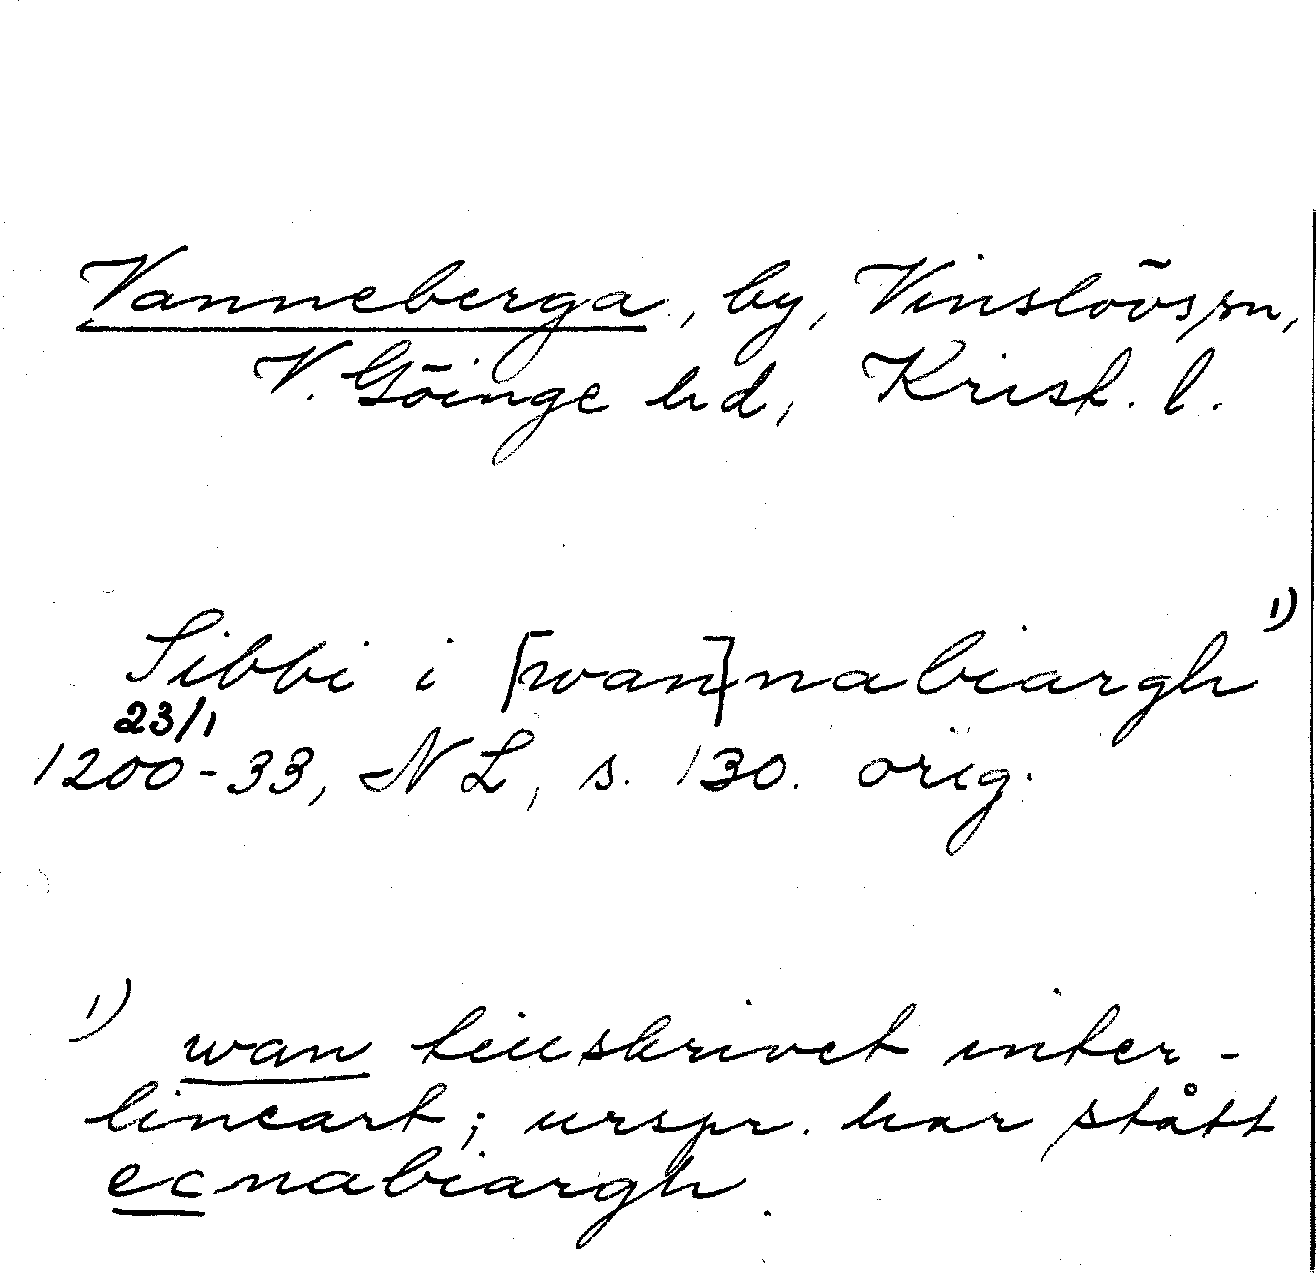 Vanneberga, by, Vinslövs sn,
V. Göinge hd, Krist. l.
Sibbi i [wan]nabiargh 1)
23/1
1200-33, NL, s. 130. orig.
1) wan tillskrivet inter-
lineart; urspr. har stått
ecnabiargh.